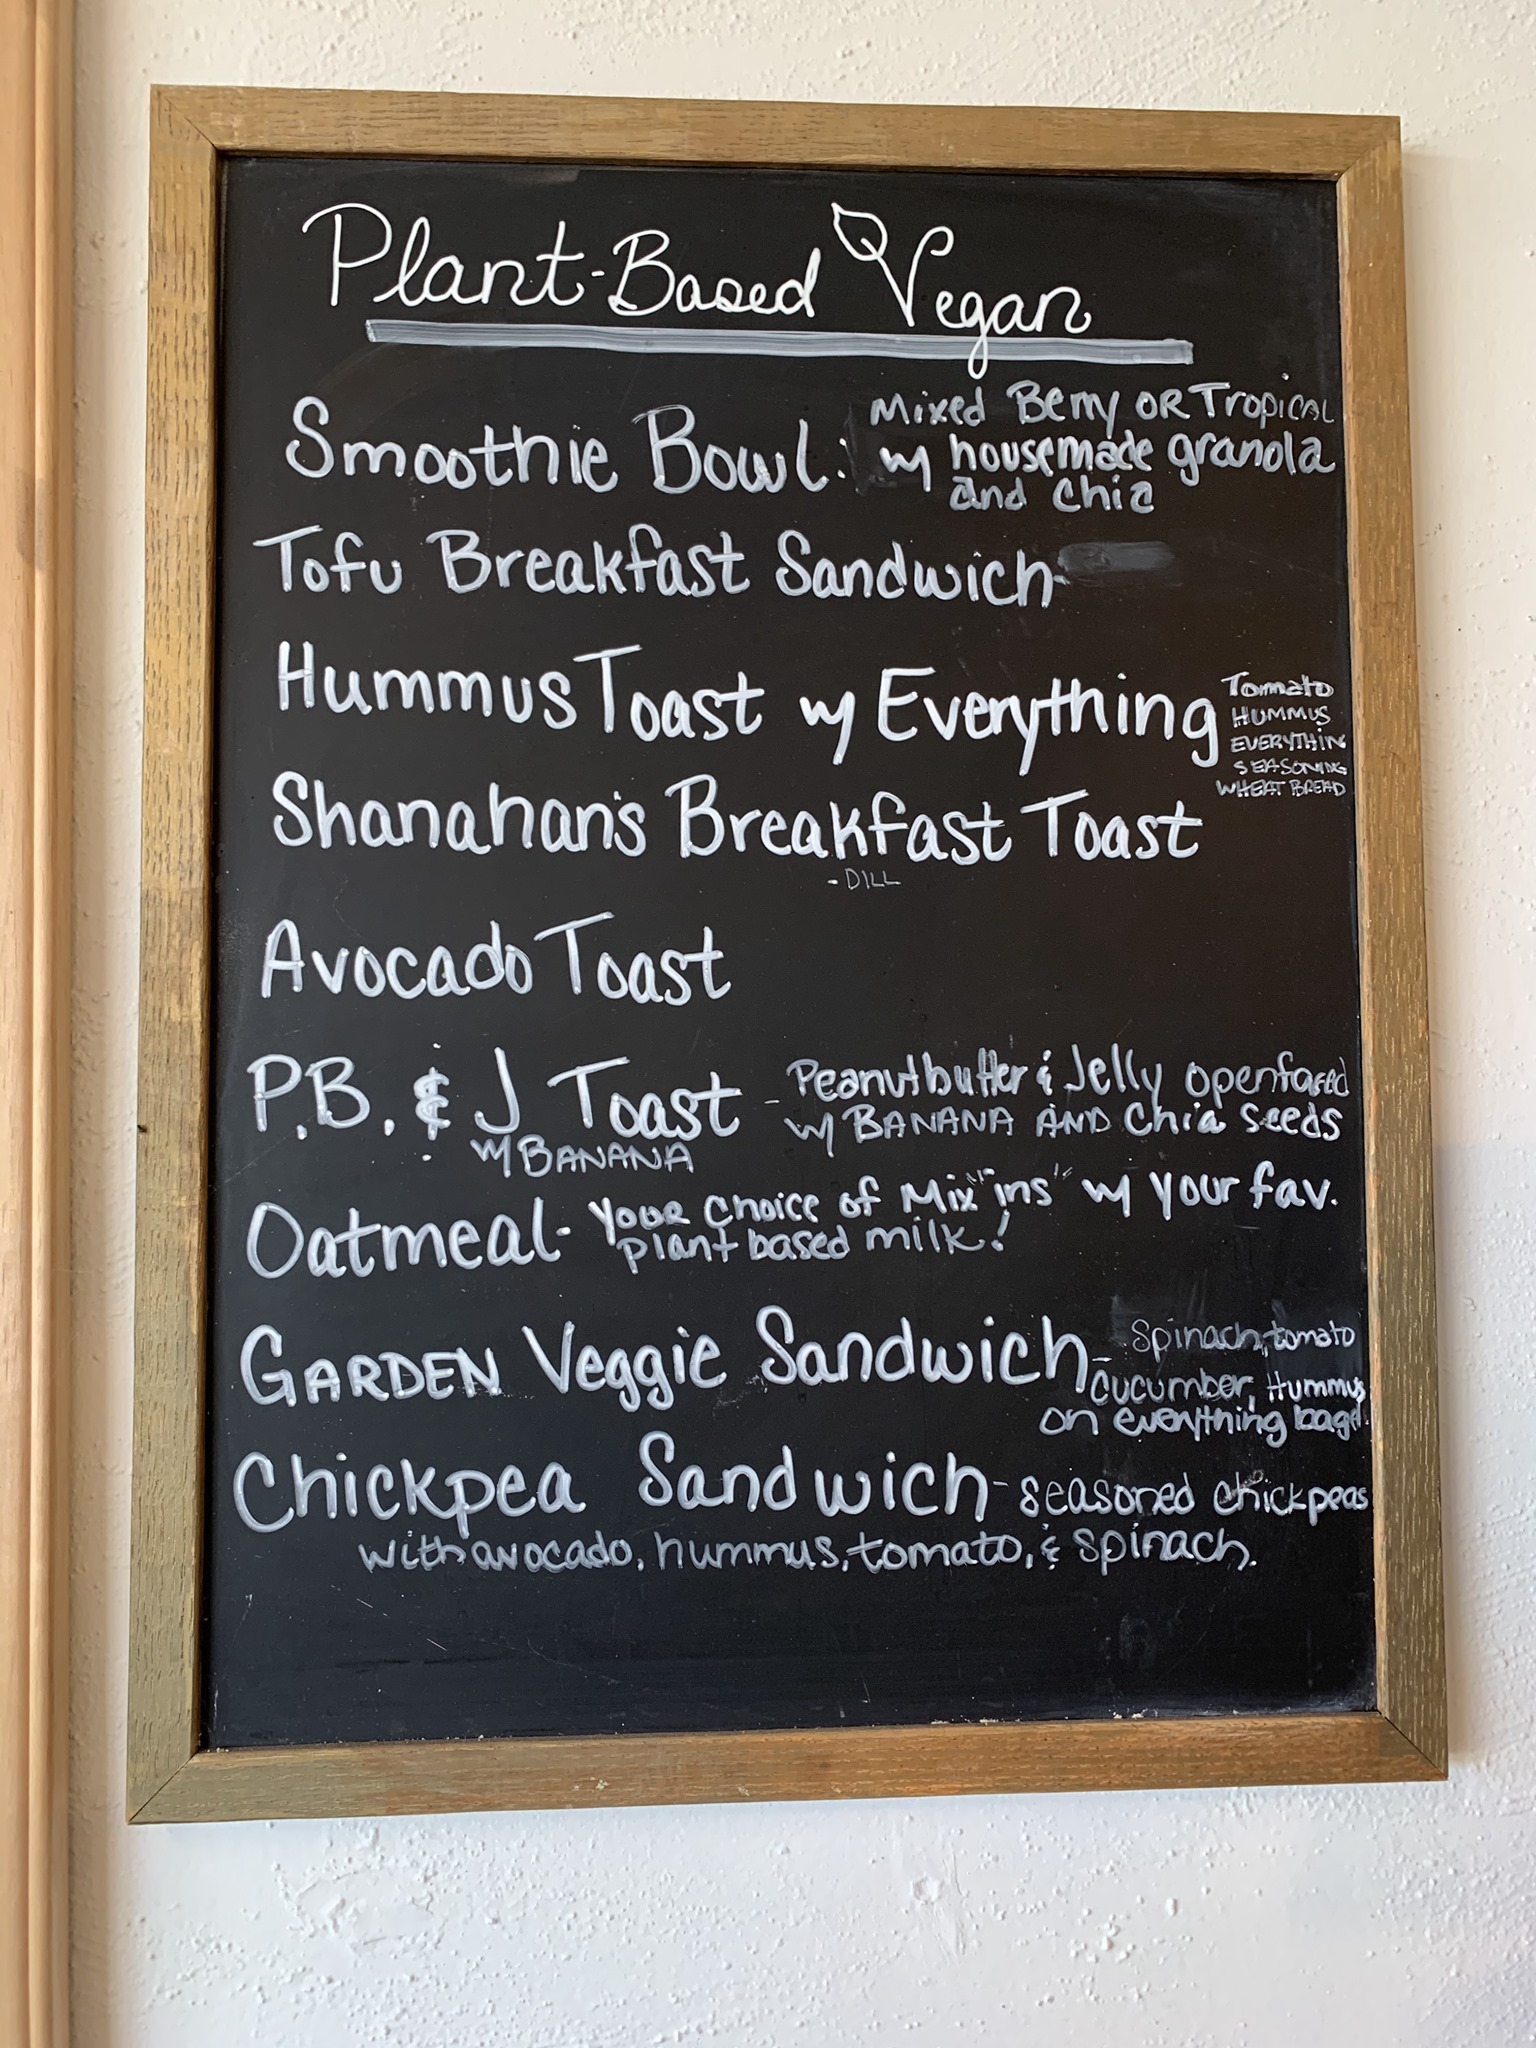 Plant-Based Vegan
Smoothie Bowl: Mixed Berry OR Tropical
w/ housemade granola
and chia
Tofu Breakfast Sandwich
Hummus Toast w/ Everything
Tomato
HUMMUS
EVERYTHIN
SEASONING
WHEAT BREAD
Shanahan's Breakfast Toast
- DILL
Avocado Toast
P.B. & J Toast - Peanutbutter & Jelly openfaced
w/ BANANA AND Chia seeds
w/ BANANA
Oatmeal - Your choice of Mix "ins" w/ your fav.
plant based milk!
GARDEN Veggie Sandwich - Spinach, tomato
cucumber, Hummus
on everything bagel.
Chickpea Sandwich - seasoned chickpeas
with avocado, hummus, tomato, & spinach.